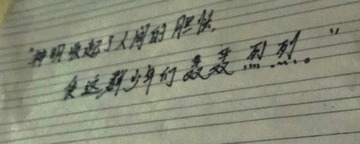 "神明张起了人间的胆怯,
会这群少年们轰轰烈烈。"